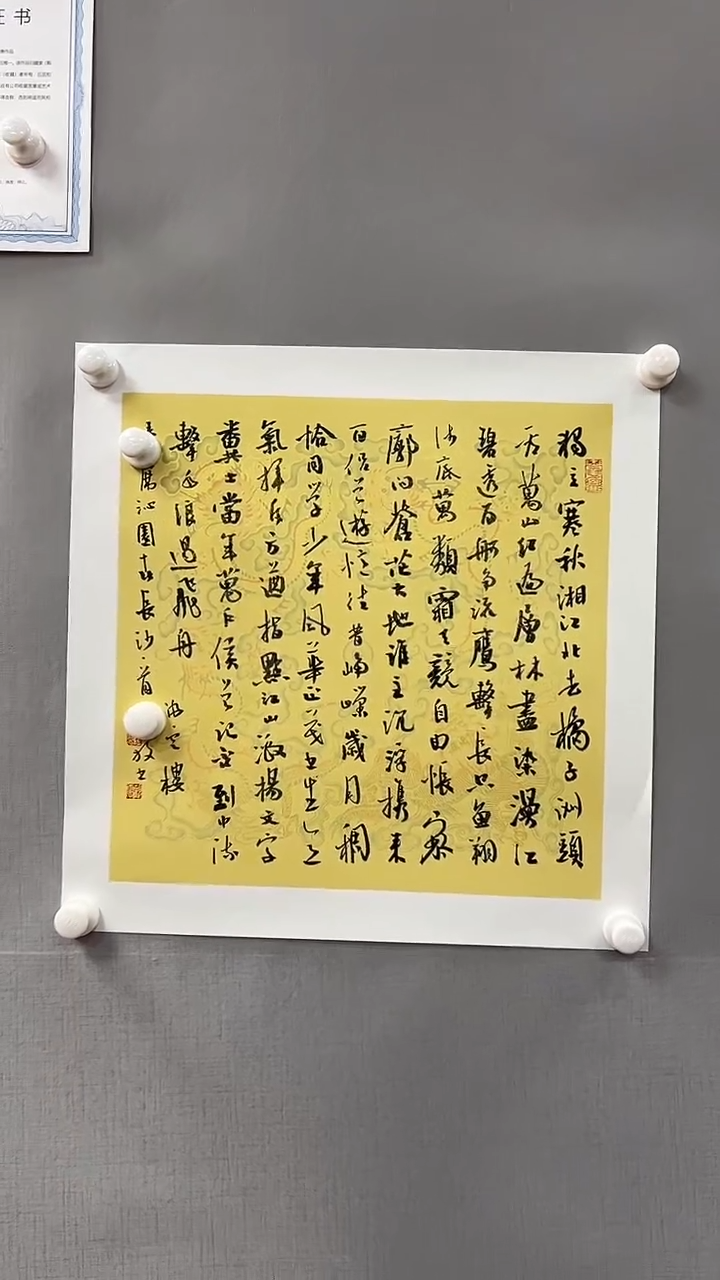 书
獨立寒秋湘江北去橘子洲頭
看萬山紅遍層林盡染漫江
碧透百舸爭流鷹擊長空魚翔
淺底萬類霜天競自由悵寥
廓問蒼茫大地誰主沉浮攜來
百侶曾遊憶往昔崢嶸歲月稠
恰同學少年風華正茂書生意
氣揮斥方遒指點江山激揚文字
糞土當年萬戶侯曾記否到中流
擊水浪遏飛舟 雲樓
席沁園春長沙一首 敬書